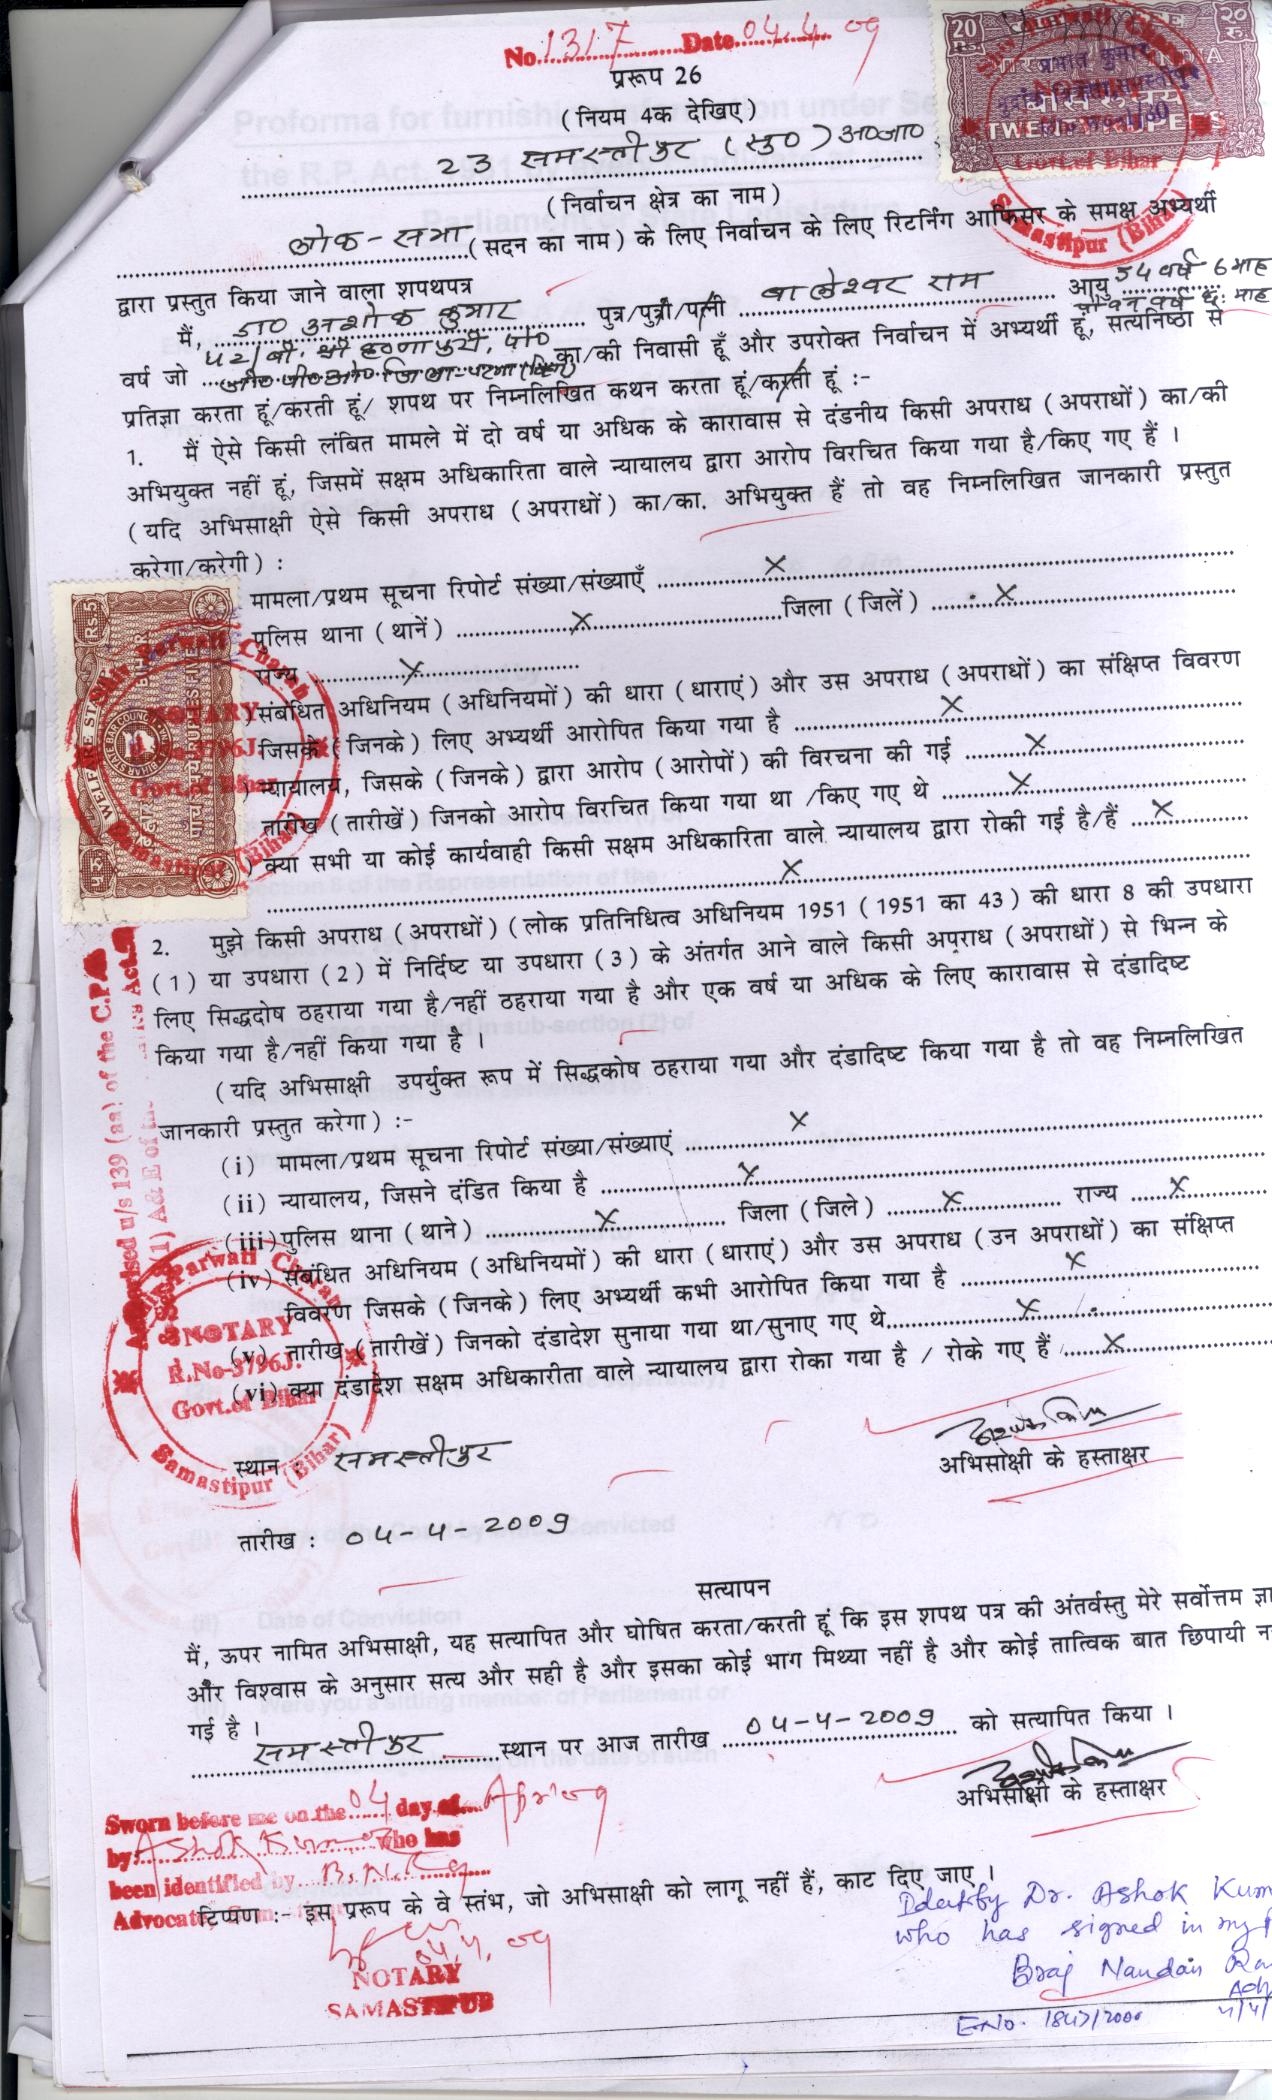 No. 1317 Date 04.4.09
प्ररूप 26
(नियम 4क देखिए)
23 समस्तीपुर (सु०) अ०जा०
(निर्वाचन क्षेत्र का नाम)
लोक-सभा (सदन का नाम) के लिए निर्वाचन के लिए रिटर्निंग आफिसर के समक्ष अभ्यर्थी
द्वारा प्रस्तुत किया जाने वाला शपथपत्र
मैं, डा० अशोक कुमार पुत्र/पुत्री/पत्नी बालेश्वर राम आयु 54 वर्ष 6 माह
चौवन वर्ष छः माह
वर्ष जो 42/बी, श्री कृष्णापुरी, पो० जी०पी०ओ० जिला-पटना (बिहार) का/की निवासी हूँ और उपरोक्त निर्वाचन में अभ्यर्थी हूं, सत्यनिष्ठा से
प्रतिज्ञा करता हूं/करती हूं/ शपथ पर निम्नलिखित कथन करता हूं/करती हूं :-
1. मैं ऐसे किसी लंबित मामले में दो वर्ष या अधिक के कारावास से दंडनीय किसी अपराध (अपराधों) का/की
अभियुक्त नहीं हूं, जिसमें सक्षम अधिकारिता वाले न्यायालय द्वारा आरोप विरचित किया गया है/किए गए हैं ।
(यदि अभिसाक्षी ऐसे किसी अपराध (अपराधों) का/का. अभियुक्त हैं तो वह निम्नलिखित जानकारी प्रस्तुत
करेगा/करेगी) :
मामला/प्रथम सूचना रिपोर्ट संख्या/संख्याएँ X
पुलिस थाना (थानें) X जिला (जिलें) X
राज्य X
संबंधित अधिनियम (अधिनियमों) की धारा (धाराएं) और उस अपराध (अपराधों) का संक्षिप्त विवरण
जिसके (जिनके) लिए अभ्यर्थी आरोपित किया गया है X
न्यायालय, जिसके (जिनके) द्वारा आरोप (आरोपों) की विरचना की गई X
तारीख (तारीखें) जिनको आरोप विरचित किया गया था /किए गए थे X
क्या सभी या कोई कार्यवाही किसी सक्षम अधिकारिता वाले न्यायालय द्वारा रोकी गई है/हैं X
X
2. मुझे किसी अपराध (अपराधों) (लोक प्रतिनिधित्व अधिनियम 1951 (1951 का 43) की धारा 8 की उपधारा
(1) या उपधारा (2) में निर्दिष्ट या उपधारा (3) के अंतर्गत आने वाले किसी अपराध (अपराधों) से भिन्न के
लिए सिद्धदोष ठहराया गया है/नहीं ठहराया गया है और एक वर्ष या अधिक के लिए कारावास से दंडादिष्ट
किया गया है/नहीं किया गया है ।
(यदि अभिसाक्षी उपर्युक्त रूप में सिद्धकोष ठहराया गया और दंडादिष्ट किया गया है तो वह निम्नलिखित
जानकारी प्रस्तुत करेगा) :-
(i) मामला/प्रथम सूचना रिपोर्ट संख्या/संख्याएं X
(ii) न्यायालय, जिसने दंडित किया है X
(iii) पुलिस थाना (थाने) X जिला (जिले) X राज्य X
(iv) संबंधित अधिनियम (अधिनियमों) की धारा (धाराएं) और उस अपराध (उन अपराधों) का संक्षिप्त
विवरण जिसके (जिनके) लिए अभ्यर्थी कभी आरोपित किया गया है X
(v) तारीख (तारीखें) जिनको दंडादेश सुनाया गया था/सुनाए गए थे X
(vi) क्या दंडादेश सक्षम अधिकारीता वाले न्यायालय द्वारा रोका गया है / रोके गए हैं X
स्थान समस्तीपुर
अभिसाक्षी के हस्ताक्षर
तारीख : 04-4-2009
सत्यापन
मैं, ऊपर नामित अभिसाक्षी, यह सत्यापित और घोषित करता/करती हूं कि इस शपथ पत्र की अंतर्वस्तु मेरे सर्वोत्तम
और विश्वास के अनुसार सत्य और सही है और इसका कोई भाग मिथ्या नहीं है और कोई तात्विक बात छिपायी
गई है ।
समस्तीपुर स्थान पर आज तारीख 04-4-2009 को सत्यापित किया ।
अभिसाक्षी के हस्ताक्षर
Sworn before me on the 04 day of April 09
by Ashok Kumar who has
been identified by B.N. Ray
Advocate,
टिप्पण :- इस प्ररूप के वे स्तंभ, जो अभिसाक्षी को लागू नहीं हैं, काट दिए जाए ।
04.4.09
NOTARY
SAMASTIPUR
Identify Dr. Ashok
who has signed in my
Braj Nandan
E.No. 1847/2000
20 Rs. २० रु.
बीस रुपये
TWENTY RUPEES
प्रभात कुमार
Shiv Parwati Charan
Govt. of Bihar
Samastipur (Bihar)
Rs. 5
WELFARE STAMP
BIHAR STATE BAR COUNCIL
पांच रुपये RUPEES FIVE
Shiv Parwati Charan
NOTARY
R.No-3796J.
Govt. of Bihar
Samastipur (Bihar)
Authorised u/s 139 (aa) of the C.P.
(1) A & E of the Act.
Shiv Parwati Charan
NOTARY
R.No-3796J.
Govt. of Bihar
Samastipur (Bihar)